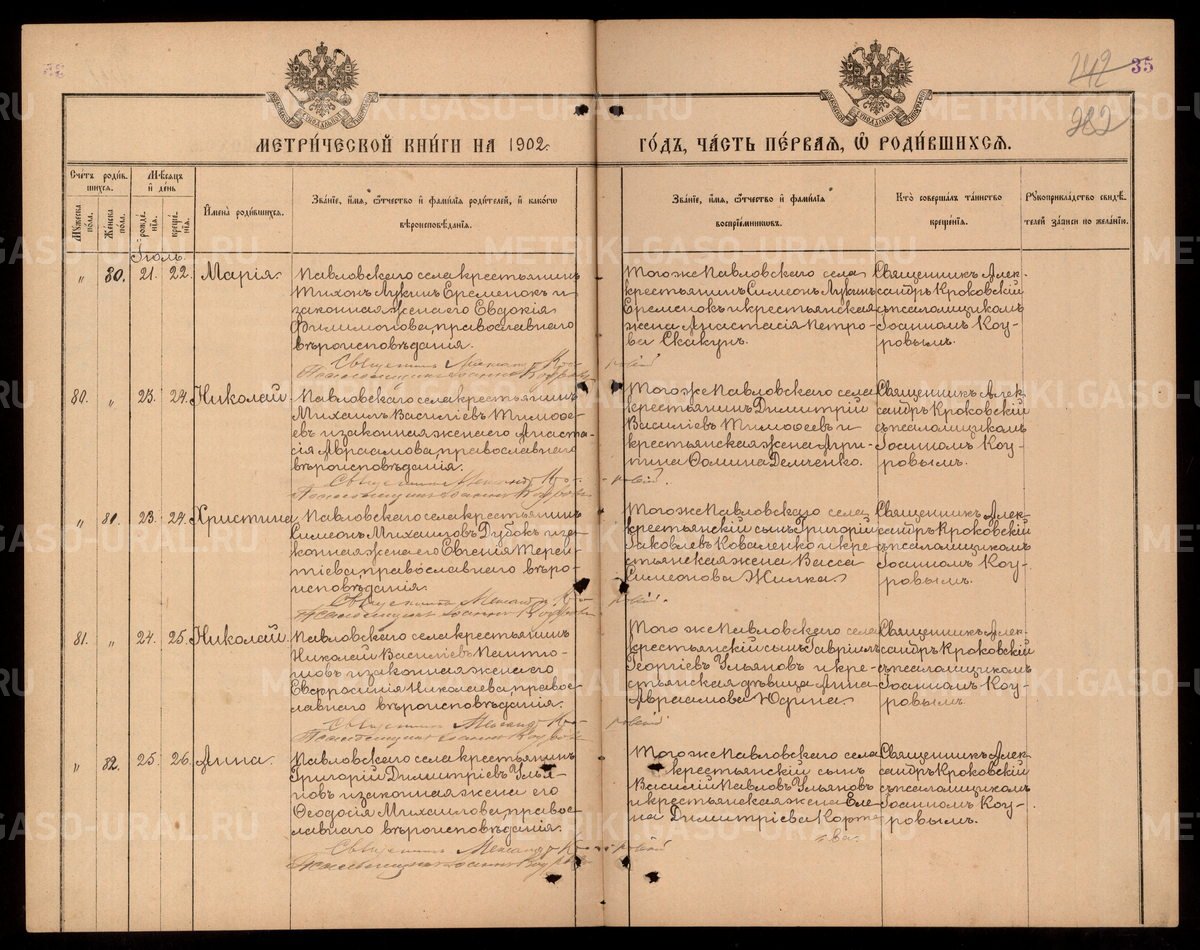 242
35
282
МЕТРИ́ЧЕСКОЙ КНИ́ГИ НА 1902.
ГО́ДЪ, ЧА́СТЬ ПЕ́РВАѦ, Ѡ РОДИ́ВШИХСѦ.
Сче́тъ роди́в-
шихсѧ.
Мꙋ́жеска по́ла.
Же́нска по́ла.
Мѣ́сѧцъ и́ де́нь
рожде́нїѧ.
креще́нїѧ.
И҆мена̀ роди́вшихсѧ.
Зва́нїе, и҆́мѧ, ѻ҆́тчество и҆ фами́лїѧ роди́телей, и҆ како́гѡ
вѣроисповѣ́данїѧ.
Зва́нїе, и҆́мѧ, ѻ҆́тчество и҆ фами́лїѧ
воспрїе́мниковъ.
Кто̀ соверша́лъ та́инство
креще́нїѧ.
Рꙋкоприкла́дство свидѣ́-
телей за́писи по жела́нїю.
Іюль.
" 80. 21. 22. Марія.
Павловскаго села крестьянинъ
Тихонъ Лукинъ Еременокъ и
законная жена его Евдокія
Филимонова, православнаго
вѣроисповѣданія.
Священникъ Александръ Кро-
ковскій
Псаломщикъ Іоаннъ Коуровъ
Того же Павловскаго села
крестьянинъ Симеонъ Лукинъ
Еременокъ и крестьянская
жена Анастасія Петро-
ва Скакунъ.
Священникъ Алек-
сандръ Кроковскій
съ псаломщикомъ
Іоанномъ Коу-
ровымъ.
80. " 23. 24. Николай.
Павловскаго села крестьянинъ
Михаилъ Васильевъ Тимоѳе-
евъ и законная жена его Анаста-
сія Авраамова, православнаго
вѣроисповѣданія.
Священникъ Александръ Кро-
ковскій.
Псаломщикъ Іоаннъ Коуровъ
Того же Павловскаго села
крестьянинъ Димитрій
Василіевъ Тимоѳеевъ и
крестьянская жена Ири-
тина Ѳомина Демченко.
Священникъ Алек-
сандръ Кроковскій
съ псаломщикомъ
Іоанномъ Коу-
ровымъ.
" 81. 23. 24. Христина
Павловскаго села крестьянинъ
Симеонъ Михаиловъ Дубокъ и за-
конная жена его Евгенія Терен-
тіева, православнаго вѣро-
исповѣданія.
Священникъ Александръ Кро-
ковскій.
Псаломщикъ Іоаннъ Коуровъ
Того же Павловскаго села
крестьянскій сынъ Григорій
Іаковлевъ Коваленко и кре-
стьянская жена Васса
Симеонова Жилка.
Священникъ Алек-
сандръ Кроковскій
съ псаломщикомъ
Іоанномъ Коу-
ровымъ.
81. " 24. 25. Николай.
Павловскаго села крестьянинъ
Николай Василіевъ
и законная жена его
Евфросинія Николаева, правос-
лавнаго вѣроисповѣданія.
Священникъ Александръ Кро-
ковскій
Псаломщикъ Іоаннъ Коуровъ
Того же Павловскаго села
крестьянскій сынъ Гавріилъ
Георгіевъ Ульяновъ и кре-
стьянская дѣвица Анна
Авраамова Юдина.
Священникъ Алек-
сандръ Кроковскій
съ псаломщикомъ
Іоанномъ Коу-
ровымъ.
" 82. 25. 26. Анна.
Павловскаго села крестьянинъ
Григорій Димитріевъ Улья-
новъ и законная жена его
Ѳеодосія Михаилова, правос-
лавнаго вѣроисповѣданія.
Священникъ Александръ Кро-
ковскій
Псаломщикъ Іоаннъ Коуровъ
Того же Павловскаго села
крестьянскій сынъ
Василій Павловъ Ульяновъ
и крестьянская жена Еле-
на Димитріева Корте
ва.
Священникъ Алек-
сандръ Кроковскій
съ псаломщикомъ
Іоанномъ Коу-
ровымъ.
METRIKI.GASO-URAL.RU